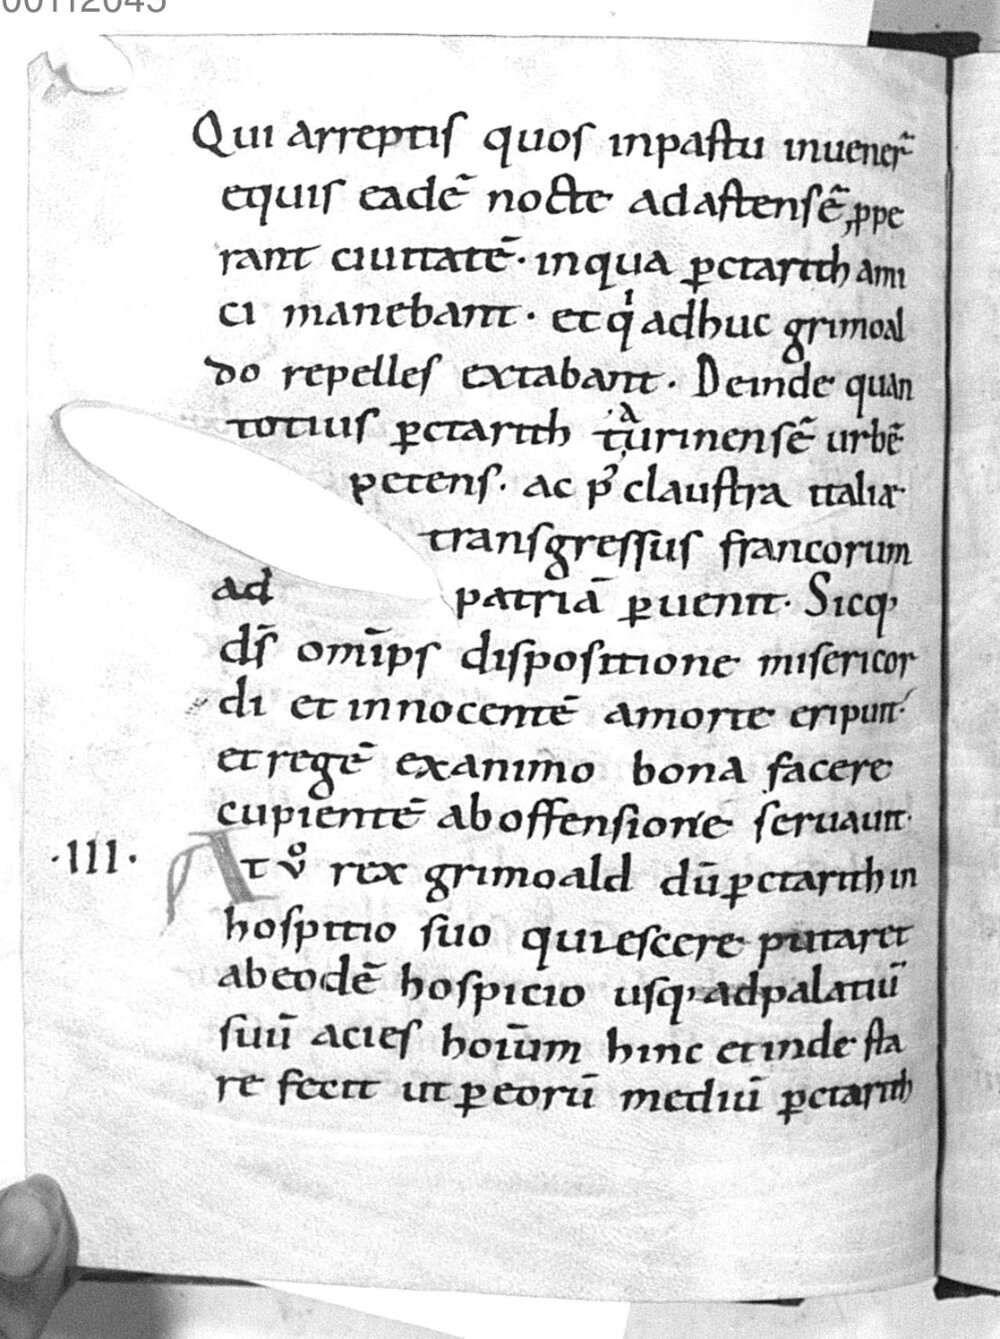 00112045
Qui arreptiſ quoſ inpaſtu inuener̄
equiſ eadē nocte adaſtenſē ,ppe
rant ciuitatē · inqua ꝑctarith ami
ci manebant · et qͥ adhuc grimoal
do repelleſ extabant · Deinde quan
totiuſ ꝑctarith tȧurinenſē urbē
petenſ · ac p᷒ clauſtra italiæ
tranſgreſſuſ francorum
ad patriā ꝑuenit · Sicq;
dſ̄ omīpſ diſpoſitione miſericor
di et innocentē amorte eripuit ·
et regē exanimo bona facere
cupientē aboffenſione ſeruauit ·
·III· At v̊ rex grimoald dū ꝑctarith in
hoſpitio ſuo quieſcere putaret
abeodē hoſpicio uſq; adpalatiū
ſuū acieſ hoīum hinc etinde ſta
re fecit ut ꝑeorū mediū ꝑctarith